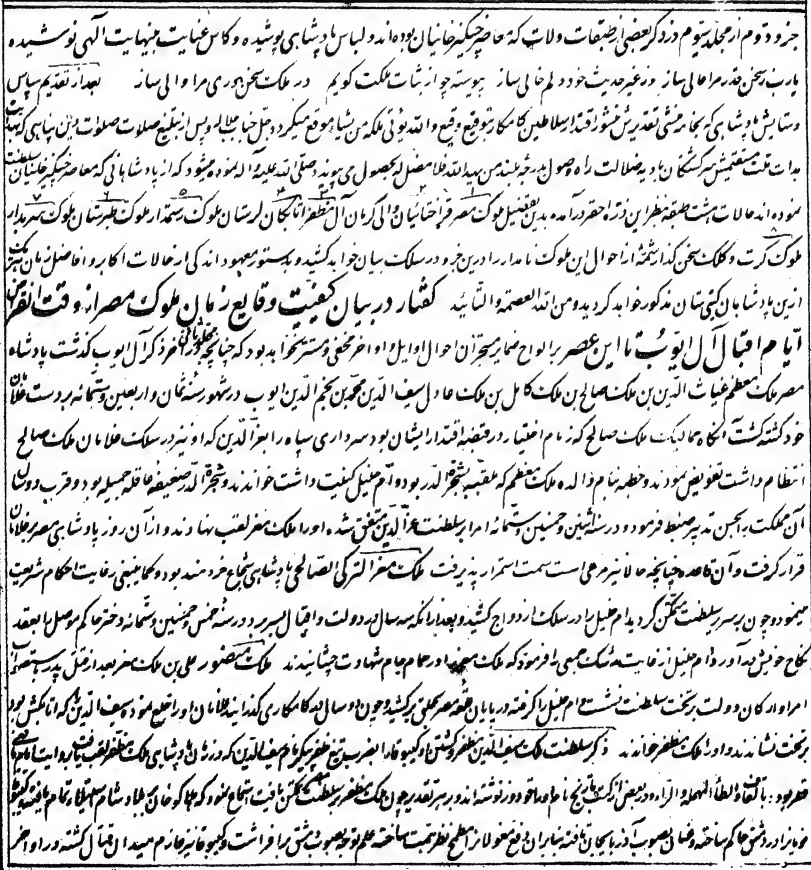 جزو دوم از مجلد سیوم در ذکر بعضی از طبقات ولات که معاصر چنگیزخانیان بوده‌اند و لباس پادشاهی پوشیده و کاس عنایت بینهایت الهی نوشیده
یارب ز سخن قدر مرا عالی ساز در غیر حدیث خود دلم خالی ساز پیوسته چو از ثبات ملکت گویم در ملک سخنوری مرا والی ساز بعد از تقدیم سپاس
و ستایش پادشاهی که بجامه منشی تقدیرش منشور اقتدار سلاطین کامکار بتوقیع وقیع والله یؤتی ملکه من یشاء موقع میگردد و پس از تبلیغ صلات صلوات
هدات ملت مستقیمش سرگشتگان بادیه ضلالت راه وصول بدرجه بلند من یهد الله فلا مضل له بحصول می پیوندد صلی الله علیه و آله نموده میشود که از پادشاهانی که معاصر چنگیزخانیان سلطنت
نموده‌اند حالات هشت طبقه بنظر این ذره احقر درآمده بدین تفصیل ملوک مصر قراختائیان والی کرمان آل مظفر اتابکان لرستان ملوک رستمدار ملوک طبرستان ملوک سربدار
ملوک کرت و کلک سخن گذار شمهٔ از احوال این ملوک نامدار را درین جزو در سلک بیان خواهد کشید و بدستور معهود اندکی از حالات اکابر و افاضل زمان هر یک
ازین پادشاهان گیتی ستان مذکور خواهد گردید و من الله العصمة والتائید گفتار در بیان کیفیت وقایع زمان ملوک مصر از وقت انقراض
ایام اقبال آل ایوب تا این عصر بر الواح ضمایر مستخبران احوال اوایل و اواخر مخفی و مستتر نخواهد بود که چنانچه در آخر ذکر آل ایوب گذشت پادشاه
مصر ملک معظم غیاث الدین بن ملک صالح بن ملک کامل بن ملک عادل سیف الدین محمد بن نجم الدین ایوب در شهور سنه ثمان و اربعین و ستمائه بر دست غلامان
خود کشته گشت آنگاه ممالیک ملک صالح که زمام اختیار در قبضه اقتدار ایشان بود سرداری سپاه را بعز الدین که او نیز در سلک غلامان ملک صالح
انتظام داشت تفویض نمودند و خطبه بنام والده ملک معظم که ملقبه بشجرة الدر بود و ام خلیل کنیت داشت خواندند و شجرة الدر ضعیفه عاقله جمیله بود و قرب دو سال
آن مملکت را بحسن تدبیر ضبط فرمود و در سنه اثنین و خمسین و ستمائه امرا بر سلطنت عز الدین متفق شده او را ملک معز لقب نهادند و از آن روز پادشاهی مصر بر غلامان
قرار گرفت و آن قاعده چنانچه حالا نیز مرعی است سمت استمرار پذیرفت ملک معز الترکی الصالحی پادشاهی شجاع خردمند بود و کما ینبغی رعایت احکام شریعت
مینمود و چون بر سریر سلطنت متمکن گردید ام خلیل را در سلک ازدواج کشید و بعد از آنکه سه سال در دولت و اقبال بسر برد در سنه خمس و خمسین و ستمائه دختر حاکم موصل را بعقد
نکاح خویش درآورد و ام خلیل از غایت رشک جمعی را فرمود که ملک معز را در حمام جام شهادت چشانیدند ملک منصور علی بن ملک معز بعد از قتل پدر باستصواب
امرا و ارکان دولت بر تخت سلطنت نشست و ام خلیل را گرفته در پایان قلعه مصر بحلق برکشید و چون دو سال به کامکاری گذرانید غلامان او را خلع نموده سیف الدین را که اتابکش بود
بر تخت نشاندند و او را ملک مظفر خواندند ذکر سلطنت ملک سیف الدین مظفر و کشتن او کیبوقا را بضرب تیغ ظفر پیکر نام سیف الدین که در زمان پادشاهی ملک مظفر لقب یافت بروایت
بود بالقاف والطاء المهمله والزاء و در بعضی از کتب تاریخ نام او را قودوز نوشته‌اند و بر هر تقدیر چون ملک مظفر بر سلطنت متمکن یافت استماع نمود که هلاکو خان بر بلاد شام استیلاء تمام یافته و کیبوقا
نویانرا در دمشق حاکم ساخته و عنان بصوب آذربایجان تافته بنابران دفع مغولانرا مطمح نظر همت ساخته علم توجه بصوب دمشق برافراشت و کیبوقا نیز عازم میدان قتال گشته در اواخر